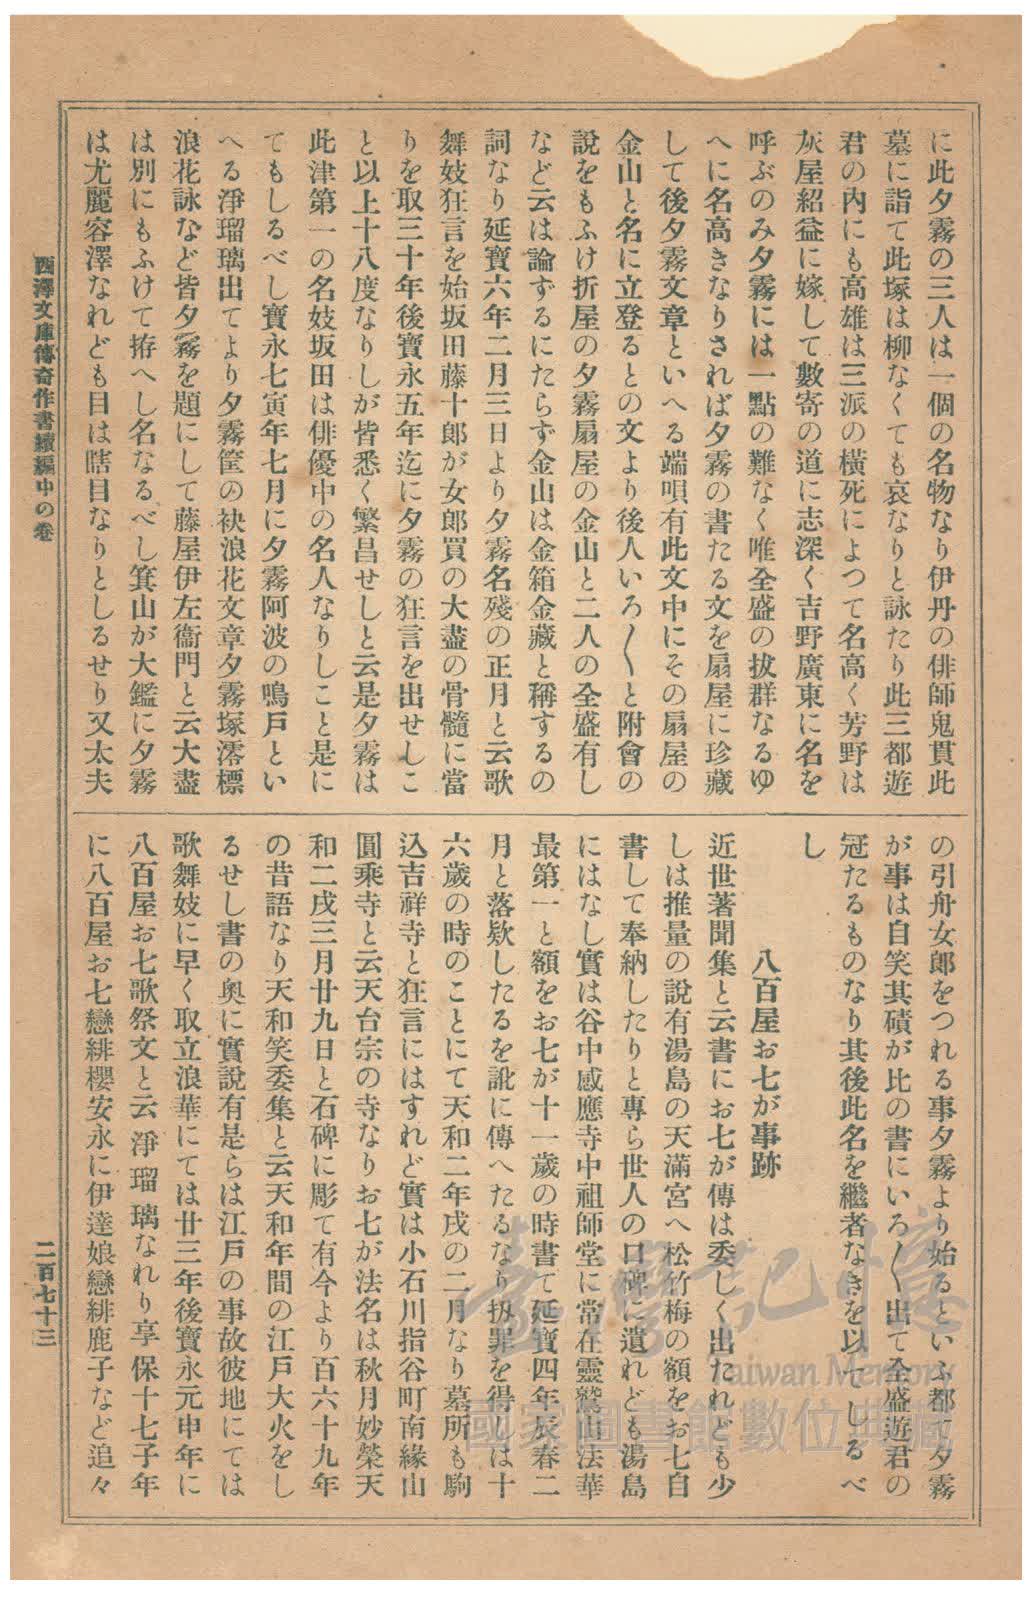 に此夕霧の三人は一個の名物なり伊丹の俳師鬼貫此
墓に詣て此塚は柳なくても哀なりと詠たり此三都遊
君の內にも高雄は三派の橫死によつて名高く芳野は
灰屋紹益に嫁して數寄の道に志深く吉野廣東に名を
呼ぶのみ夕霧には一點の難なく唯全盛の拔群なるゆ
へに名高きなりされば夕霧の書たる文を扇屋に珍藏
して後夕霧文章といへる端唄有此文中にその扇屋の
金山と名に立登るとの文より後人いろ〱と附會の
說をもふけ折屋の夕霧扇屋の金山と二人の全盛有し
など云は論ずるにたらず金山は金箱金藏と稱するの
詞なり延寶六年二月三日より夕霧名殘の正月と云歌
舞妓狂言を始坂田藤十郎が女郎買の大盡の骨髓に當
りを取三十年後寶永五年迄に夕霧の狂言を出せしこ
と以上十八度なりしが皆悉く繁昌せしと云是夕霧は
此津第一の名妓坂田は俳優中の名人なりしこと是に
てもしるべし寶永七寅年七月に夕霧阿波の鳴戶とい
へる淨瑠璃出てより夕霧筐の袂浪花文章夕霧塚澪標
浪花詠など皆夕霧を題にして藤屋伊左衞門と云大盡
は別にもふけて拵へし名なるべし箕山が大鑑に夕霧
は尤麗容澤なれども目は瞎目なりとしるせり又太夫
の引舟女郎をつれる事夕霧より始るといふ都て夕霧
が事は自笑其磧が比の書にいろ〱出て全盛遊君の
冠たるものなり其後此名を繼者なきを以てしるべ
し
八百屋お七が事跡
近世著聞集と云書にお七が傳は委しく出たれども少
しは推量の說有湯島の天滿宮へ松竹梅の額をお七自
書して奉納したりと專ら世人の口碑に遺れども湯島
にはなし實は谷中感應寺中祖師堂に常在靈鷲山法華
最第一と額をお七が十一歲の時書て延寶四年辰春二
月と落欵したるを訛に傳へたるなり扨罪を得しは十
六歲の時のことにて天和二年戌の二月なり墓所も駒
込吉祥寺と狂言にはすれど實は小石川指谷町南緣山
圓乘寺と云天台宗の寺なりお七が法名は秋月妙榮天
和二戌三月廿九日と石碑に彫て有今より百六十九年
の昔語なり天和笑委集と云天和年間の江戶大火をし
るせし書の奧に實說有是らは江戶の事故彼地にては
歌舞妓に早く取立浪華にては廿三年後寶永元申年に
八百屋お七歌祭文と云淨瑠璃なれり享保十七子年
に八百屋お七戀緋櫻安永に伊達娘戀緋鹿子など追々
西澤文庫傳奇作書續編中の卷
二百七十三
臺灣記憶
Taiwan Memory
國家圖書館數位典藏